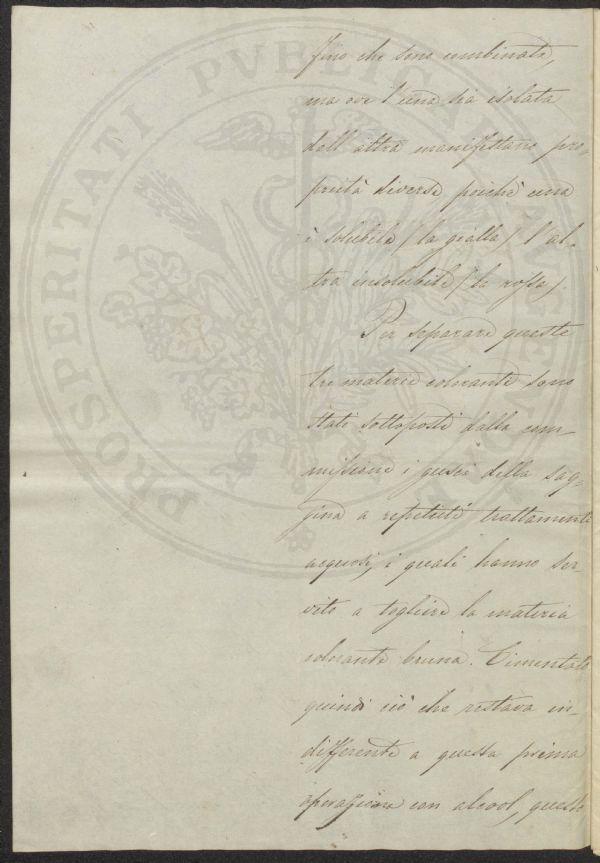 fino che sono combinate,
ma ove l'una sia isolata
dall'altra manifestano pro-
prietà diverse poichè una
è solubile (la gialla) l'al-
tra insolubile (la rossa).
Per separare queste
tre materie coloranti sono
stati sottoposti dalla com-
missione i gusci della sag-
gina a repetuti trattamenti
acquosi, i quali hanno ser-
vito a togliere la materia
colorante bruna. Cimentato
quindi ciò che restava in-
differente a questa prima
operazione con alcool, questo
PROSPERITATI PVBLICAE